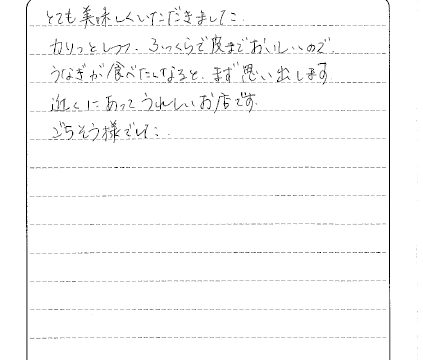 とても美味しくいただきました。
カリッとしつつ、ふっくらで皮までおいしいので
うなぎが食べたくなると、まず思い出します
近くにあってうれしいお店です。
ごちそう様でした。